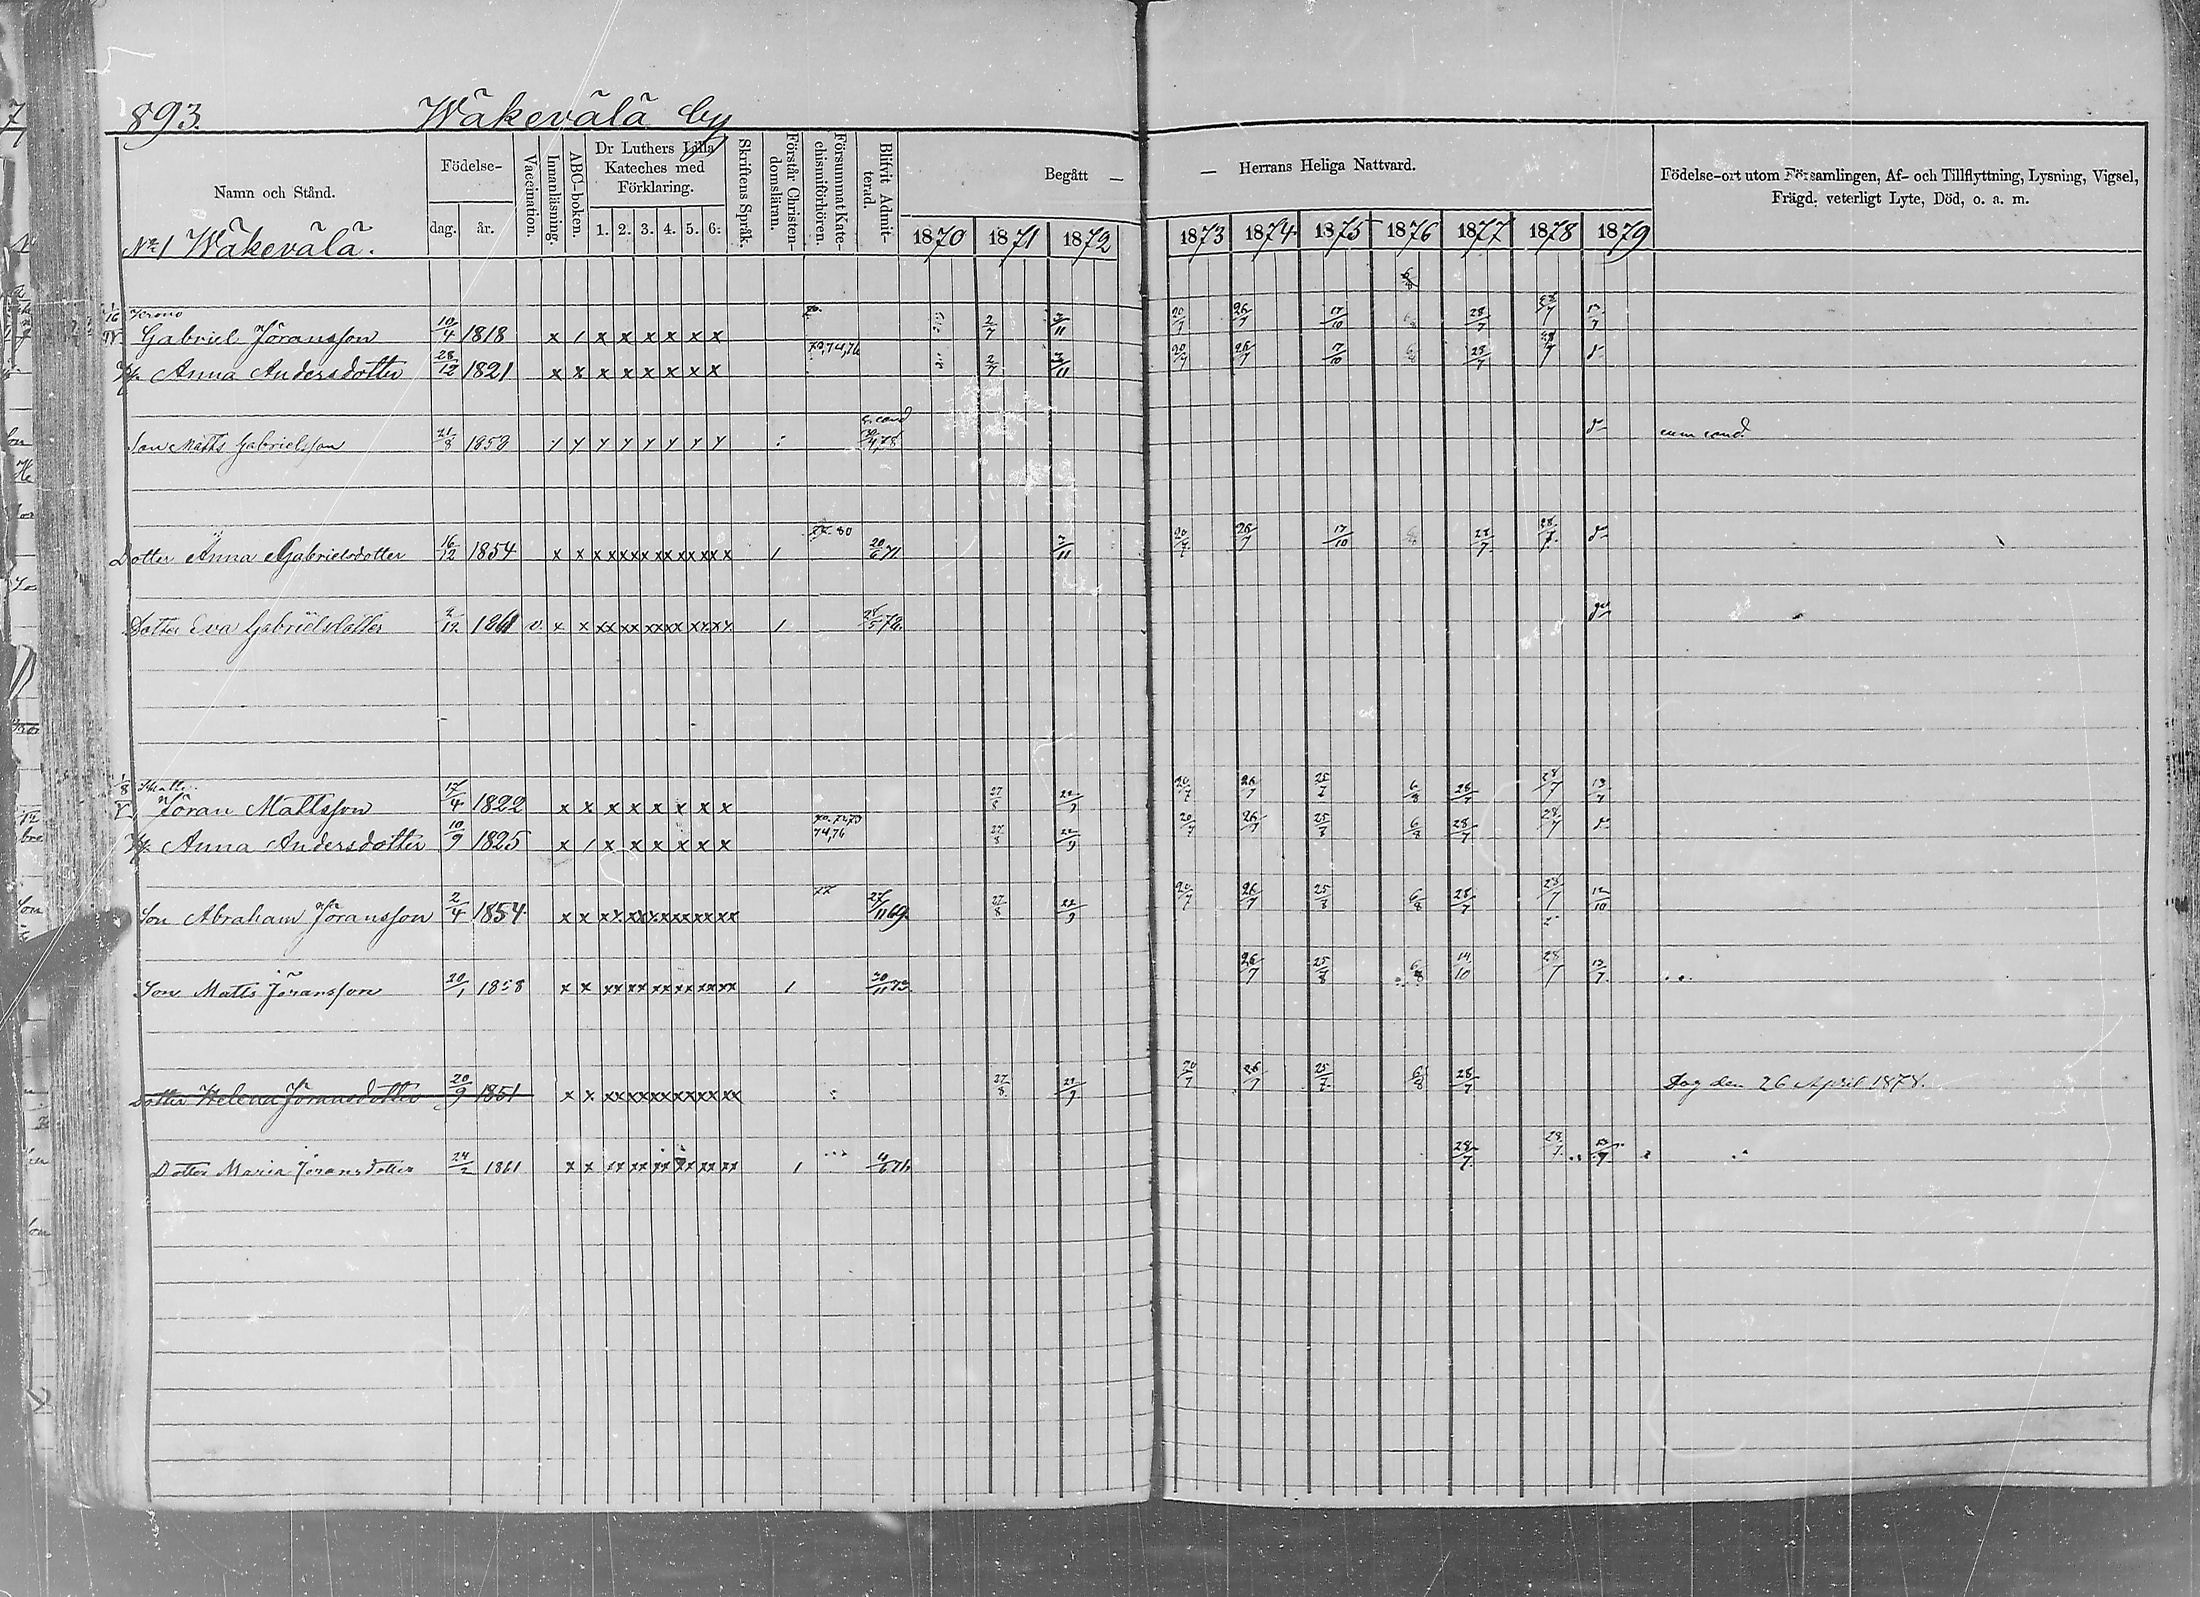 893. Wäkevälä by
Namn och Stånd.
Födelse-
dag. år.
Vaccination.
Innanläsning.
ABC-boken.
Dr Luthers Lilla Kateches med Förklaring.
1. 2. 3. 4. 5. 6.
Skriftens Språk.
Förstår Christendomsläran.
Försummat Katechismiförhören.
Blifvit Admitterad.
Begått — — Herrans Heliga Nattvard.
1870 1871 1872 1873 1874 1875 1876 1877 1878 1879
Födelse-ort utom Församlingen, Af- och Tillflyttning, Lysning, Vigsel, Frägd, veterligt Lyte, Död, o. a. m.
No 1 Wäkevälä.
6/8
Krono
Gabriel Jöransson 10/4 1818 x / x x x x x x 2/7 3/11 20/7 26/7 17/10 28/7 28/7 13/7
Anna Andersdotter 28/12 1821 x x x x x x x x 70,74,76 2/7 3/11 20/7 26/7 17/10 6/8 28/7 28/7 d-
Son Matts Gabrielsson 21/8 1853 d- cum cond.
Dotter Anna Gabrielsdotter 16/12 1854 x x xx xx xx xx xx xx / 80 20/6 71 3/11 20/7 26/7 17/10 6/8 28/7 28/7 d-
Dotter Eva Gabrielsdotter 1861 v. x x xx xx xx xx xx xx /
Jöran Mattsson 17/4 1822 x x x x x x x x 27/8 22/9 20/7 26/7 25/7 6/8 28/7 28/7 13/7
Anna Andersdotter 10/9 1825 x / x x x x x x 74,76 27/8 22/9 20/7 26/7 25/8 6/8 28/7 28/7 d-
Son Abraham Jöransson 2/4 1854 x x xx xx xx xx xx xx 27/11 69. 27/8 22/9 20/7 26/7 25/8 6/8 28/7 28/7 12/10
Son Matts Jöransson 20/1 1858 x x xx xx xx xx xx xx / 30/11 73. 26/7 25/8 6/8 14/10 28/7 13/7
Dotter Helena Jöransdotter 20/9 1851 x x xx xx xx xx xx xx 27/8 22/9 20/7 26/7 25/7 6/8 28/7 Dog den 26 April 1878.
Dotter Maria Jöransdotter 24/2 1861 x x xx xx xx xx xx xx / 28/7 28/7 13/7